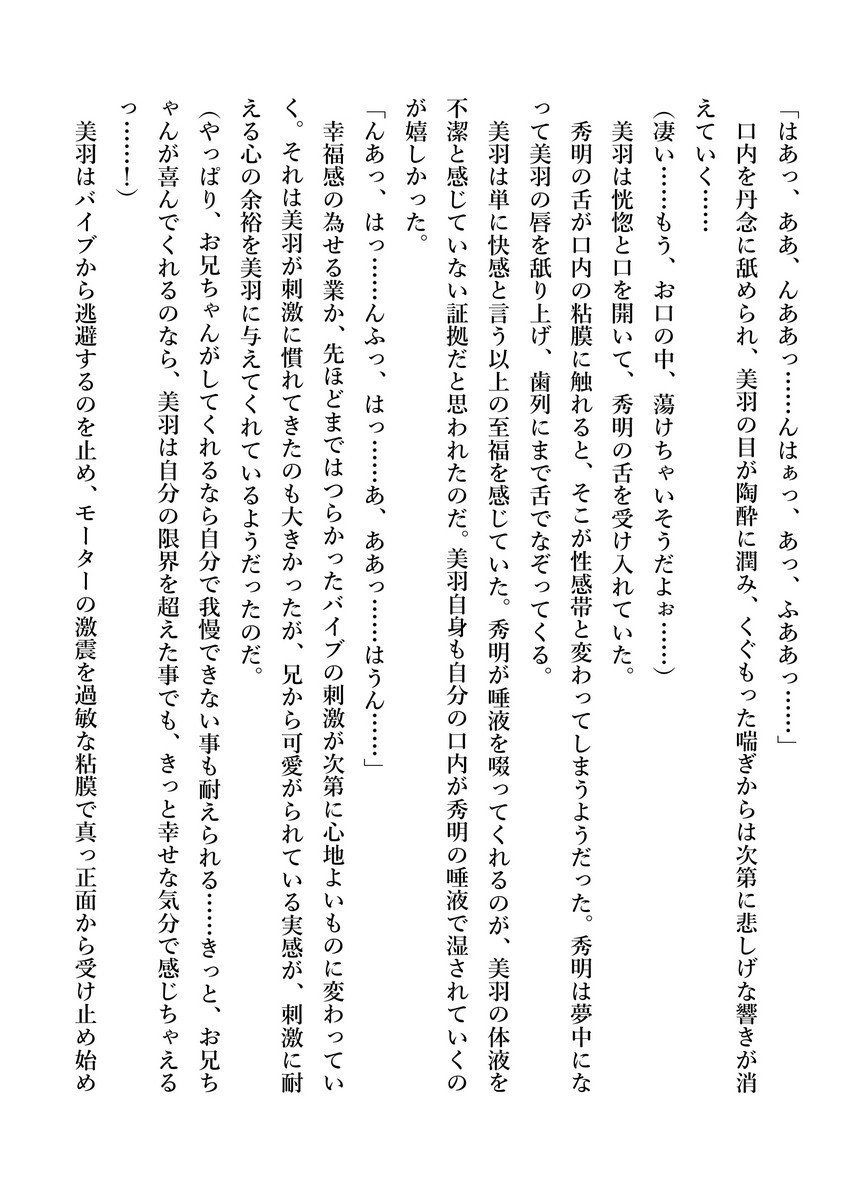 「はあっ、ああ、んああっ……んはぁっ、あっ、ふああっ……」
口内を丹念に舐められ、美羽の目が陶酔に潤み、くぐもった喘ぎからは次第に悲しげな響きが消
えていく……
(凄い……もう、お口の中、蕩けちゃいそうだよぉ……)
美羽は恍惚と口を開いて、秀明の舌を受け入れていた。
秀明の舌が口内の粘膜に触れると、そこが性感帯と変わってしまうようだった。秀明は夢中にな
って美羽の唇を舐り上げ、歯列にまで舌でなぞってくる。
美羽は単に快感と言う以上の至福を感じていた。秀明が唾液を啜ってくれるのが、美羽の体液を
不潔と感じていない証拠だと思われたのだ。美羽自身も自分の口内が秀明の唾液で湿されていくの
が嬉しかった。
「んあっ、はっ……んふっ、はっ……あ、ああっ……はうん……」
幸福感の為せる業か、先ほどまではつらかったバイブの刺激が次第に心地よいものに変わってい
く。それは美羽が刺激に慣れてきたのも大きかったが、兄から可愛がられている実感が、刺激に耐
える心の余裕を美羽に与えてくれているようだったのだ。
(やっぱり、お兄ちゃんがしてくれるなら自分で我慢できない事も耐えられる……きっと、お兄ち
ゃんが喜んでくれるのなら、美羽は自分の限界を超えた事でも、きっと幸せな気分で感じちゃえる
っ……!)
美羽はバイブから逃避するのを止め、モーターの激震を過敏な粘膜で真っ正面から受け止め始め